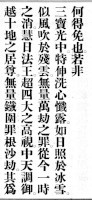 何得免也若非
三寶光中特伸洗心懺露如日照於氷雪
似風吹於殘雲無量萬劫之罪從今一時
之消慧日法王超四大之高視中天調御
越十地之居尊無量鐵圍罪根沙劫其為